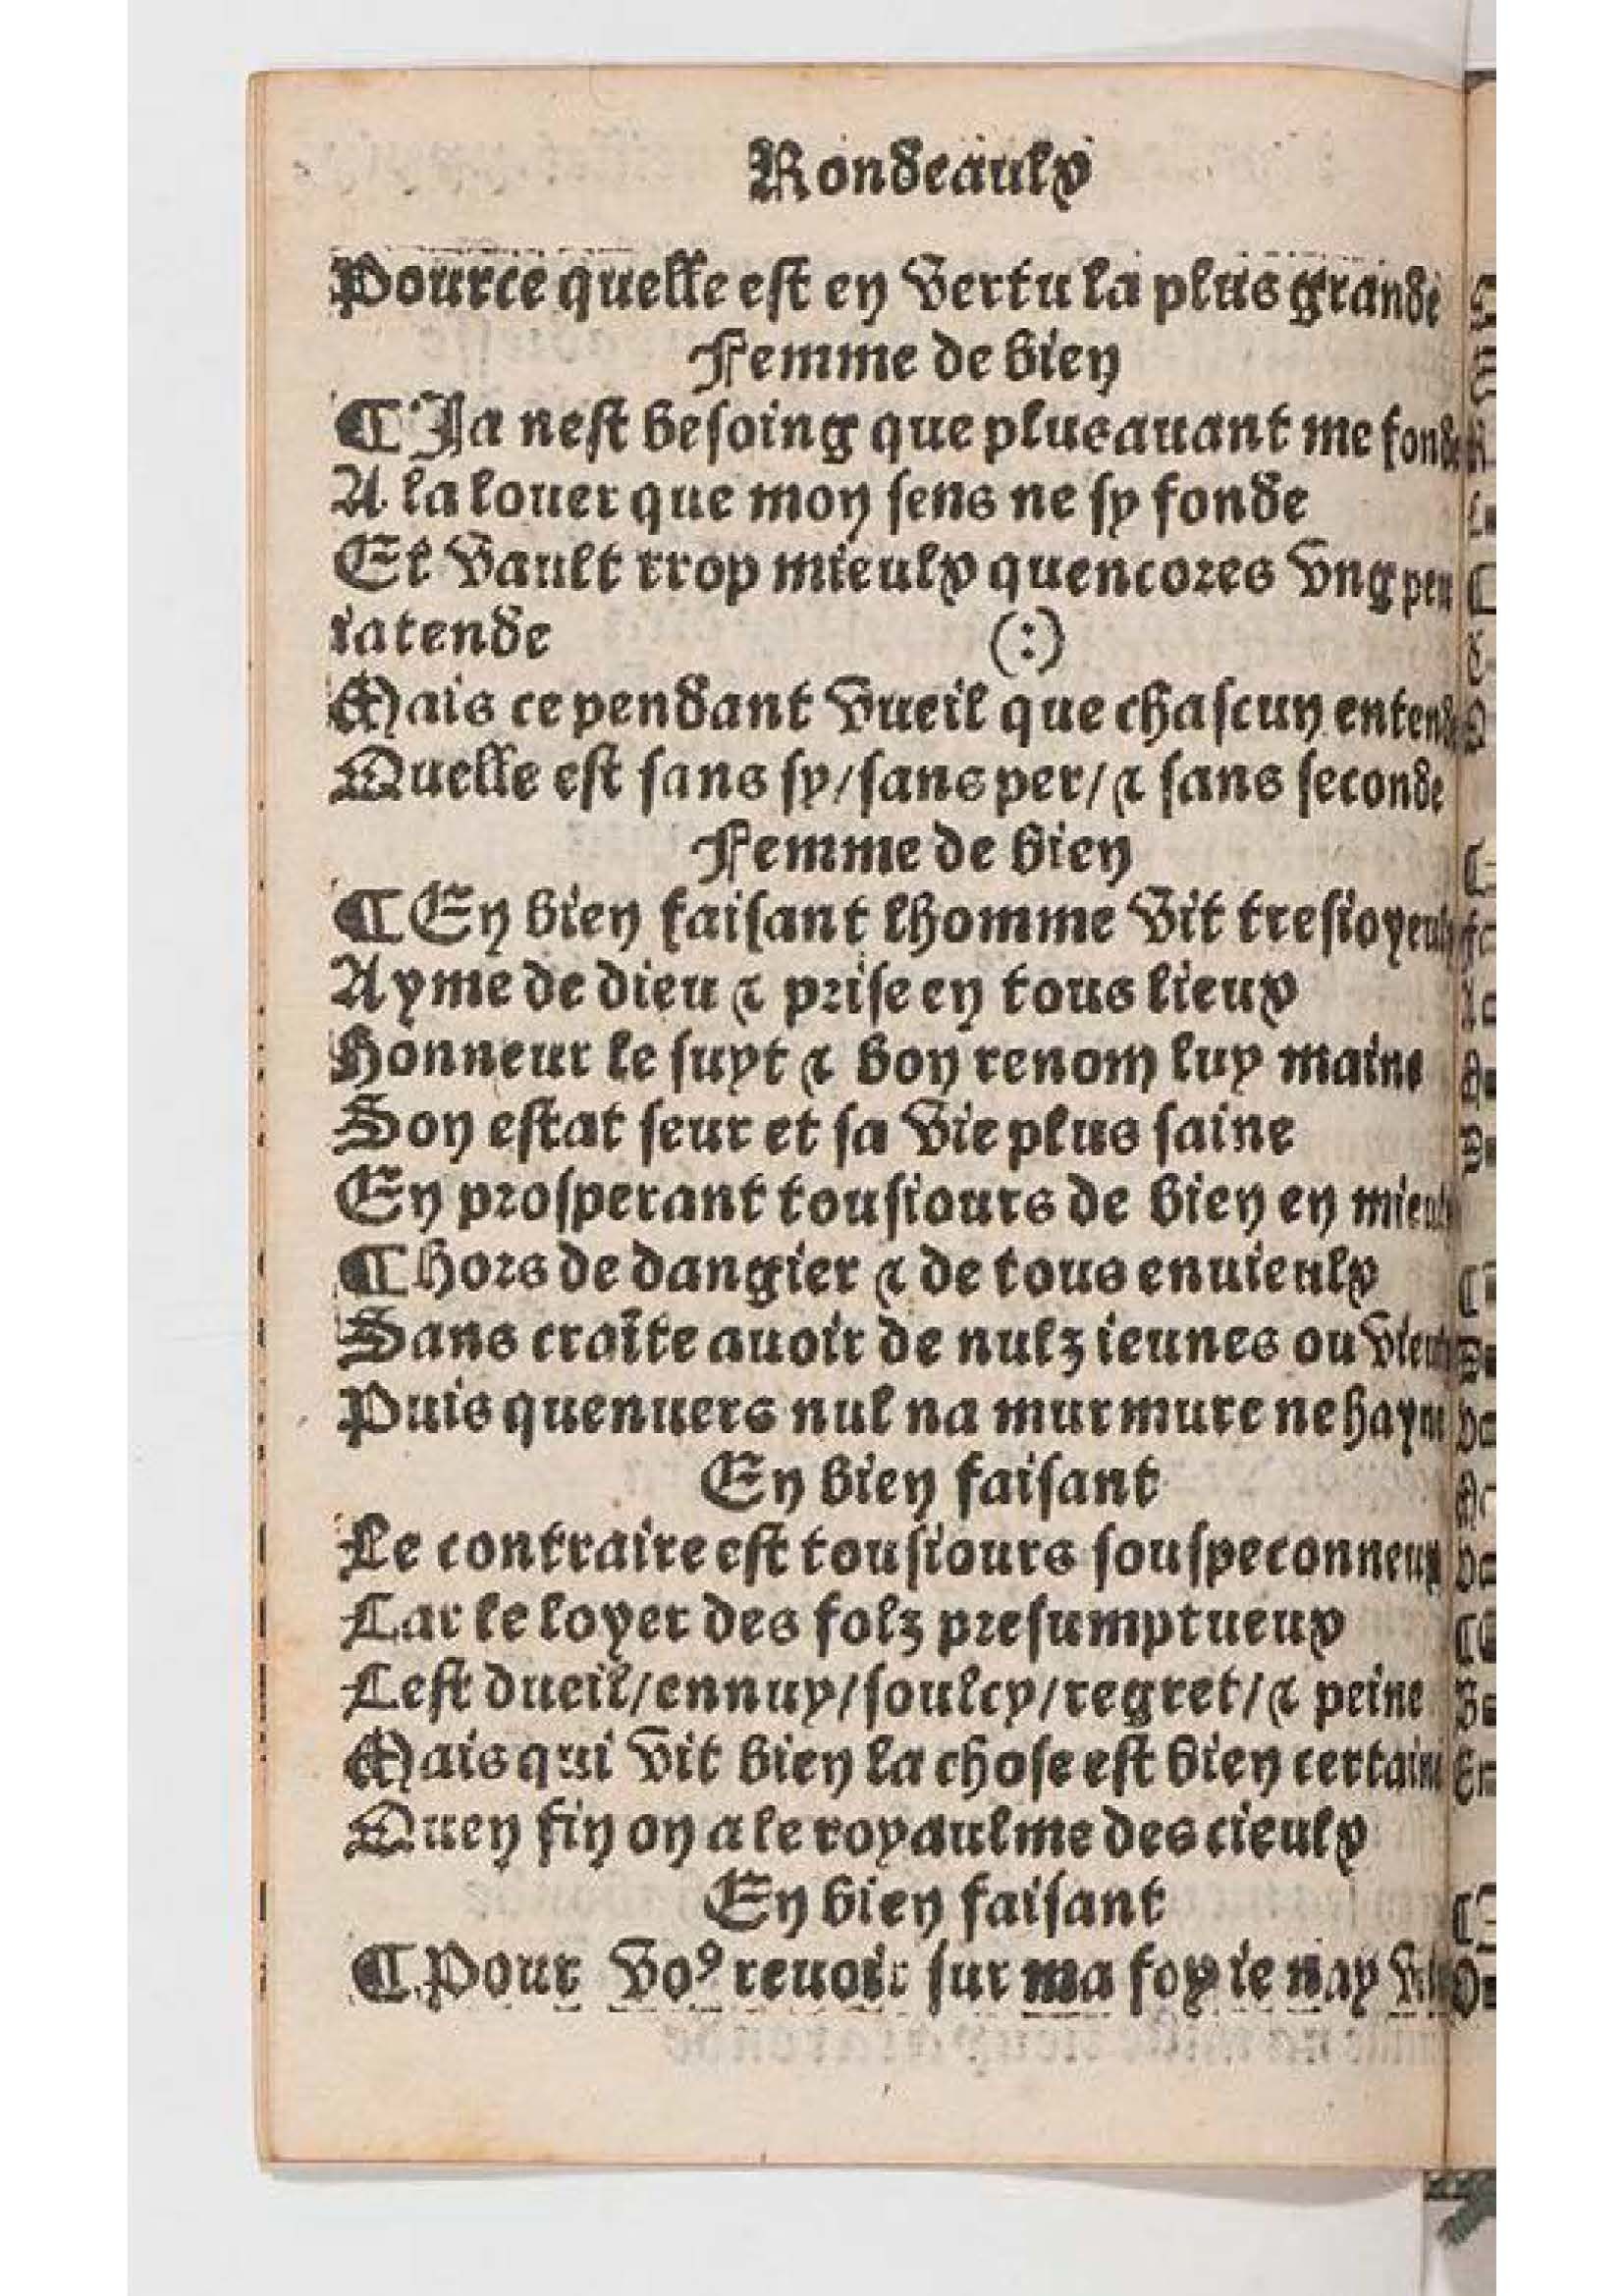 Rondeaulx
Pource quelle est en vertu la plus grande
Femme de bien
¶ Ja nest besoing que plus auant me fonde
A la louer que mon sens ne sy fonde
Et vault trop mieulx quencores vng peu
iatende (:)
Mais ce pendant vueil que chascun entende
Quelle est sans sy/sans per/⁊ sans seconde
Femme de bien
¶ En bien faisant lhomme vit tresioyeulx
Ayme de dieu ⁊ prise en tous lieux
Honneur le suyt ⁊ bon renom luy maine
Son estat seur et sa vie plus saine
En prosperant tousiours de bien en mieulx
¶ hors de dangier ⁊ de tous enuieulx
Sans craīte auoir de nulz ieunes ou vieulx
Puis quenuers nul na murmure ne hayne
En bien faisant
Le contraire est tousiours souspeconneux
Car le loyer des folz presumptueux
Cest dueil/ennuy/soulcy/regret/⁊ peine
Mais qui vit bien la chose est bien certaine
Quen fin on a le royaulme des cieulx
En bien faisant
¶ Pour voꝰ reuoir sur ma foy ie nay